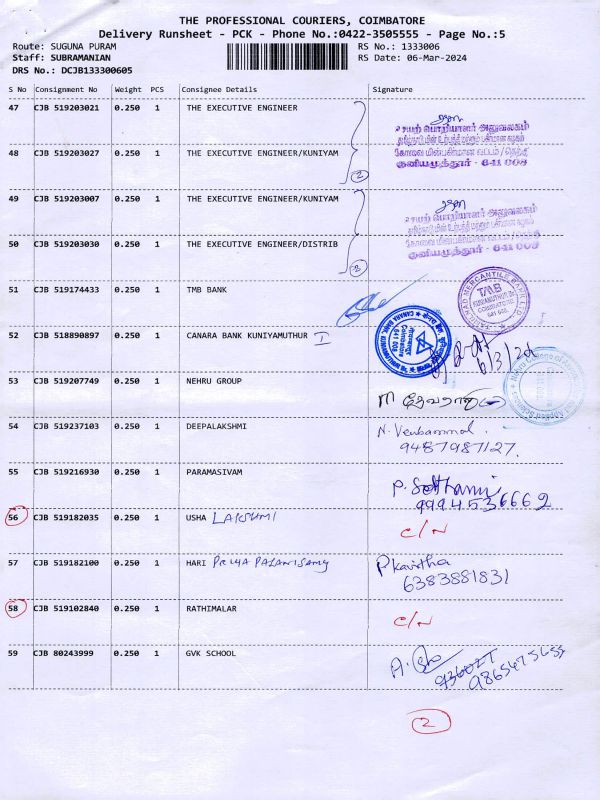 THE PROFESSIONAL COURIERS, COIMBATORE
Delivery Runsheet - PCK - Phone No.:0422-3505555 - Page No.:5
Route: SUGUNA PURAM RS No.: 1333006
Staff: SUBRAMANIAN RS Date: 06-Mar-2024
DRS No.: DCJB133300605
S No Consignment No Weight PCS Consignee Details Signature
47 CJB 519203021 0.250 1 THE EXECUTIVE ENGINEER
48 CJB 519203027 0.250 1 THE EXECUTIVE ENGINEER/KUNIYAM
2
குனியமுத்தூர் - 641 008
49 CJB 519203007 0.250 1 THE EXECUTIVE ENGINEER/KUNIYAM
50 CJB 519203030 0.250 1 THE EXECUTIVE ENGINEER/DISTRIB
குனியமுத்தூர் - 641 008
51 CJB 519174433 0.250 1 TMB BANK
TAMILNAD MERCANTILE BANK LTD
TMB
52 CJB 518890897 0.250 1 CANARA BANK KUNIYAMUTHUR I
6/3/24
53 CJB 519207749 0.250 1 NEHRU GROUP
54 CJB 519237103 0.250 1 DEEPALAKSHMI
9487987127.
55 CJB 519216930 0.250 1 PARAMASIVAM
9994536662
56 CJB 519182035 0.250 1 USHA LAKSHMI C/N
57 CJB 519182100 0.250 1 HARI PRIYA PALANISAMY P Kavitha
6383881831
58 CJB 519102840 0.250 1 RATHIMALAR C/N
59 CJB 80243999 0.250 1 GVK SCHOOL
2